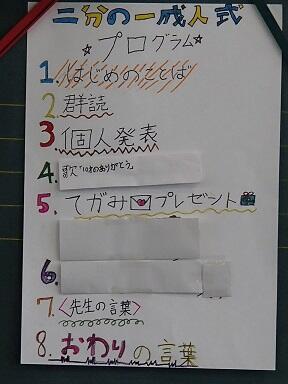 二分の一成人式
☆プログラム☆
1.はじめのことば
2.群読
3.個人発表
4.歌「10才のありがとう」
5.てがみ✉プレゼント🎁
6.
7.〈先生の言葉〉
8.おわりの言葉